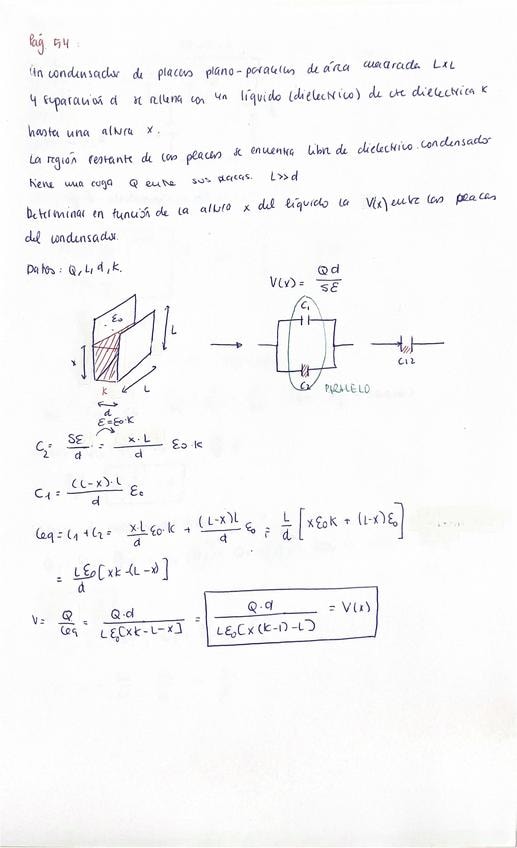 Pág. 54:
Un condensador de placas plano-paralelas de área cuadrada LxL
y separación d se rellena con un líquido (dieléctrico) de cte dieléctrica K
hasta una altura x.
La región restante de las placas se encuentra libre de dieléctrico. Condensador
tiene una carga Q entre sus placas. L>>d
Determinar en función de la altura x del líquido la V(x) entre las placas
del condensador.
Datos: Q, L, d, K.
V(x) = Qd / SE
C1
E0
L
x
K
L
d
C2
PARALELO
C12
E = E0·K
C2 = SE / d = x·L / d E0·K
C1 = (L-x)·L / d E0
Ceq = C1 + C2 = x·L / d E0·K + (L-x)L / d E0 = L / d [xE0K + (L-x)E0]
= LE0 / d [xK-(L-x)]
V = Q / Ceq = Q·d / LE0[xK-L-x] = Q·d / LE0[x(K-1)-L] = V(x)